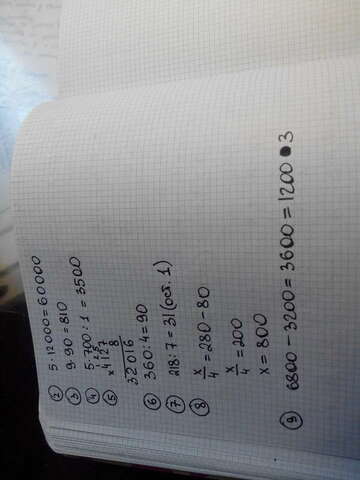 ② 5·12000=60000
③ 9·90=810
④ 5·700:1=3500
⑤ ×4127
8
32016
⑥ 360:4=90
⑦ 218:7=31(ост.1)
⑧ x/4=280-80
x/4=200
x=800
⑨ 6800-3200=3600=1200·3